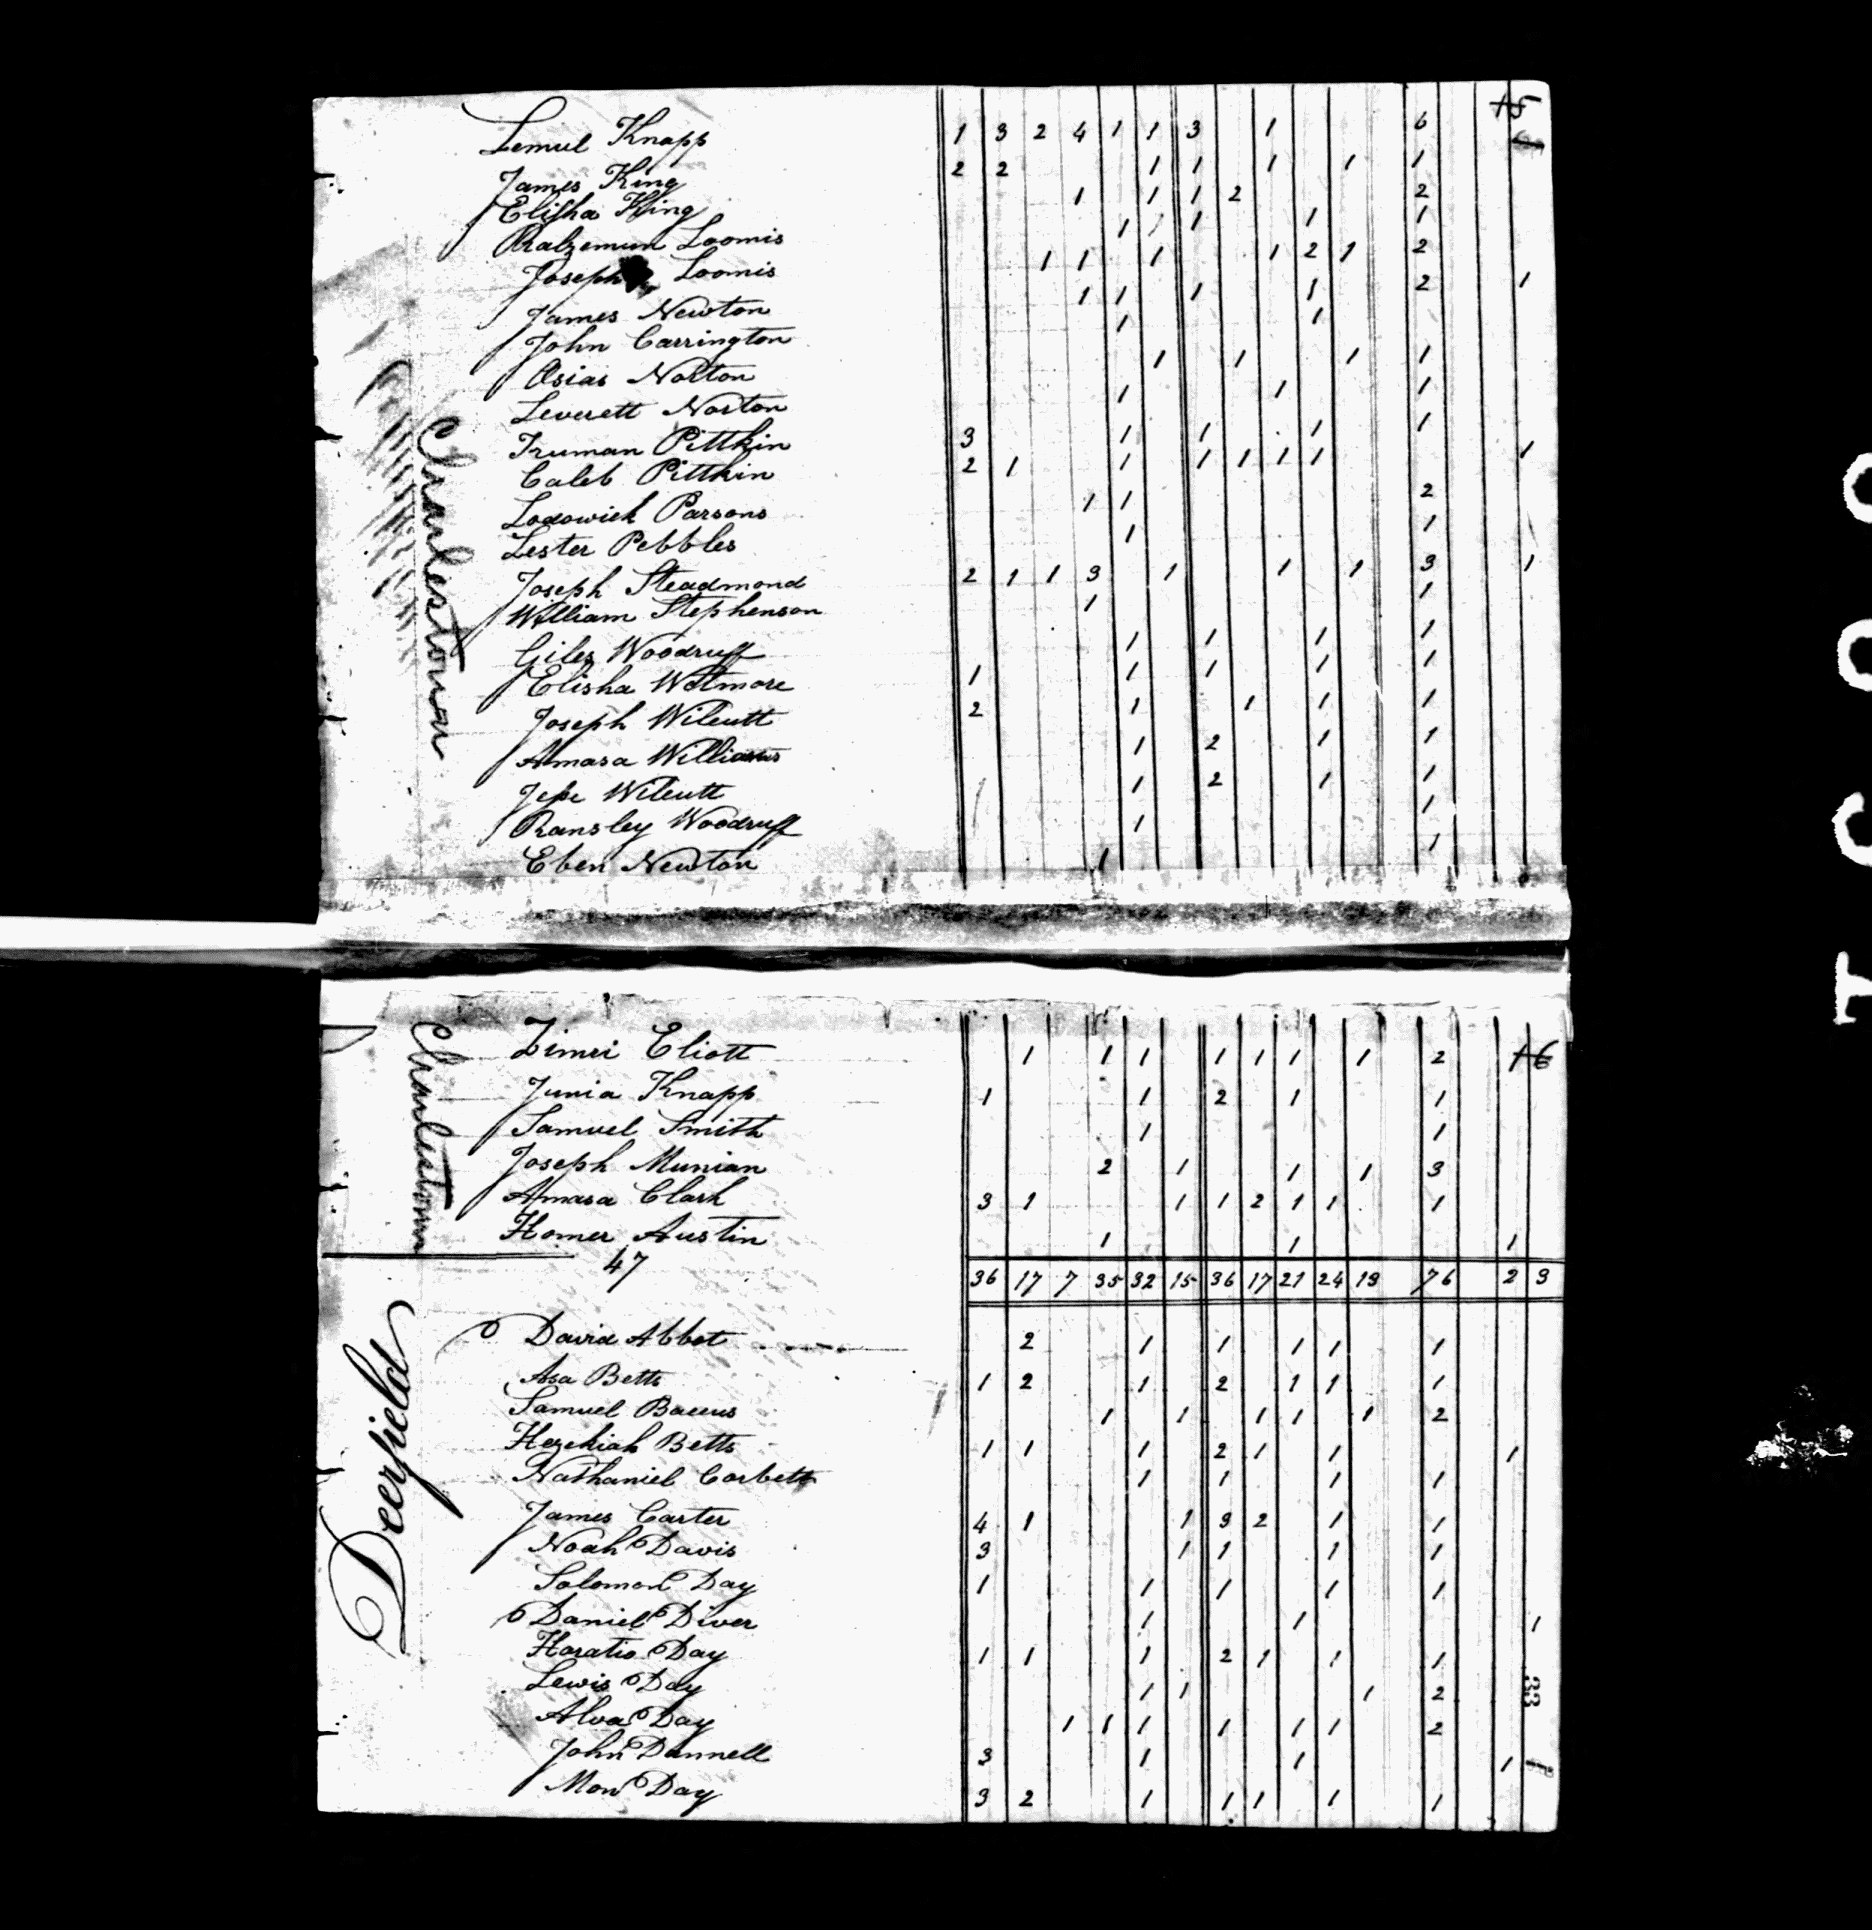 15
Lemul Knapp 1 3 2 4 1 1 3 1 6
James King 2 2 1 1 1 1 1
Elisha King 1 1 1 2 2
Loomis 1 1 1 1 1
Joseph Loomis 1 1 1 1 2 1 2
James Newton 1 1 1 1 2 1
John Carrington 1 1
Osias Norton 1 1 1 1
Leverett Norton 1 1 1
Truman Pittkin 3 1 1 1 1
Caleb Pittkin 2 1 1 1 1 1 1 1
Lodowick Parsons 1 1 2
Lester Pebbles 1 1
Joseph Steadmond 2 1 1 3 1 1 1 3 1
William Stephenson 1 1
Giles Woodruff 1 1 1 1
Elisha Wetmore 1 1 1 1 1
Joseph Wilcutt 2 1 1 1 1
Amasa Williams 1 2 1 1
Jesse Wilcutt 1 2 1 1
Ransley Woodruff 1 1
Eben Newton 1 1
Charlestown
16
Zimri Eliott 1 1 1 1 1 1 1 2
Junia Knapp 1 1 2 1 1
Samuel Smith 1 1
Joseph Munian 2 1 1 1 3
Amasa Clark 3 1 1 1 2 1 1 1
Homer Austin 1 1 1
Charlestown
47 36 17 7 35 32 15 36 17 21 24 13 76 2 3
Deerfield
David Abbot 2 1 1 1 1 1
Asa Betts 1 2 1 2 1 1 1
Samuel Baccus 1 1 1 1 1 2
Hezekiah Betts 1 1 1 2 1 1 1
Nathaniel Corbett 1 1 1 1
James Carter 4 1 1 3 2 1 1
Noah Davis 3 1 1 1 1
Solomon Day 1 1 1 1 1
Daniel Diver 1 1 1
Horatio Day 1 1 1 2 1 1 1
Lewis Day 1 1 1 2
Alva Day 1 1 1 1 1 1 2
John Dannell 3 1 1 1
Mon Day 3 2 1 1 1 1 1
33